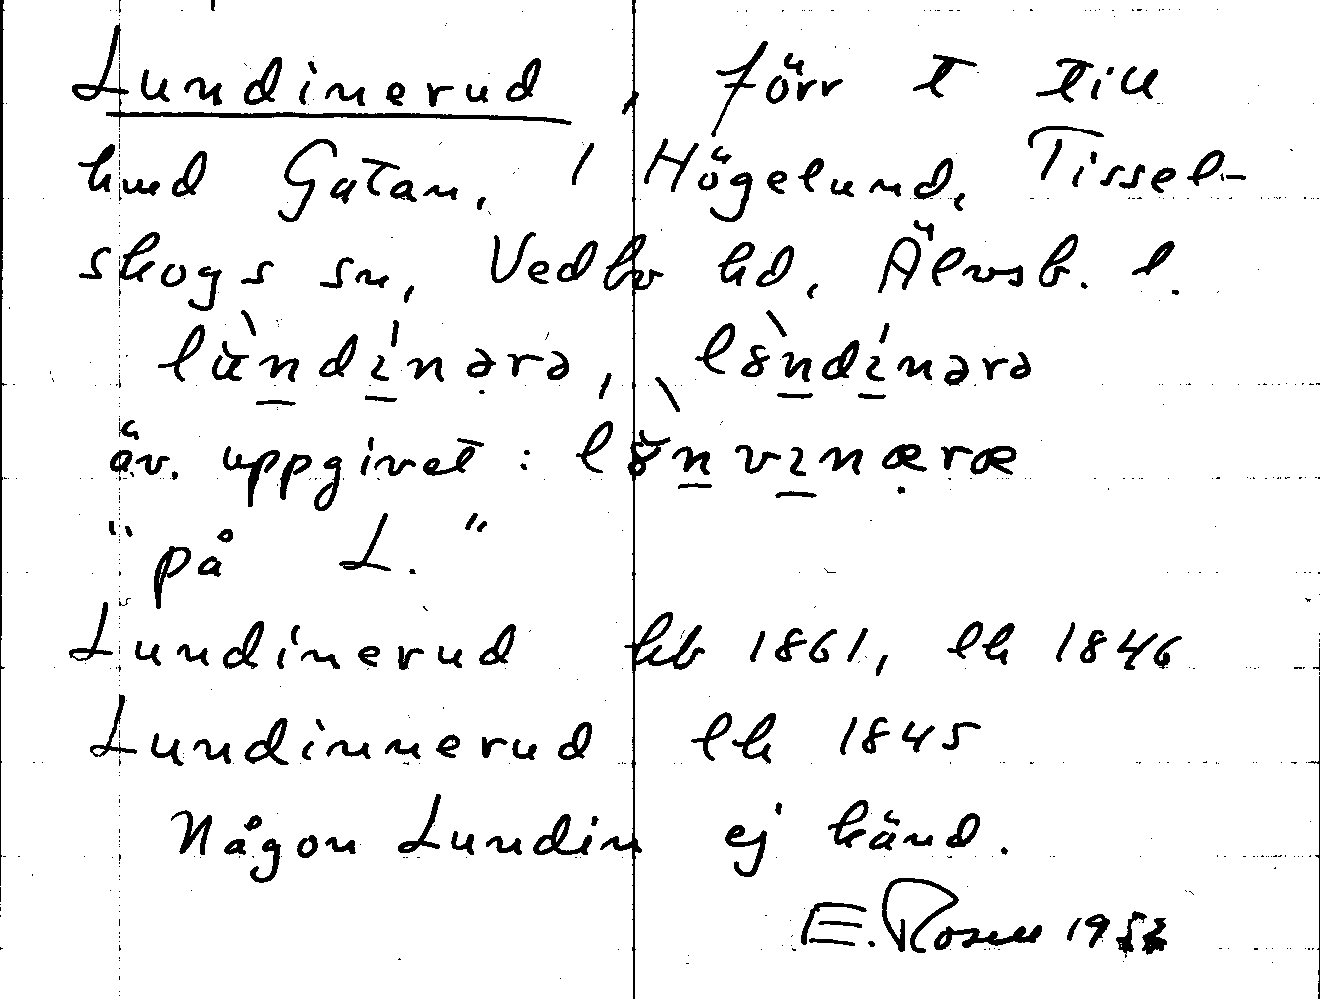 Lundinerud, förr t till
hmd Gatan, 1 Högelund, Tissel-
skogs sn, Vedbo hd, Älvsb. l.
lu̇̀ndínərə, lȣ̀ndínərə
äv. uppgivet: lȣ̀nvɩnæræ
"på L."
Lundinerud hb 1861, lk 1846
Lundinnerud lk 1845
Någon Lundin ej känd.
E. Rosell